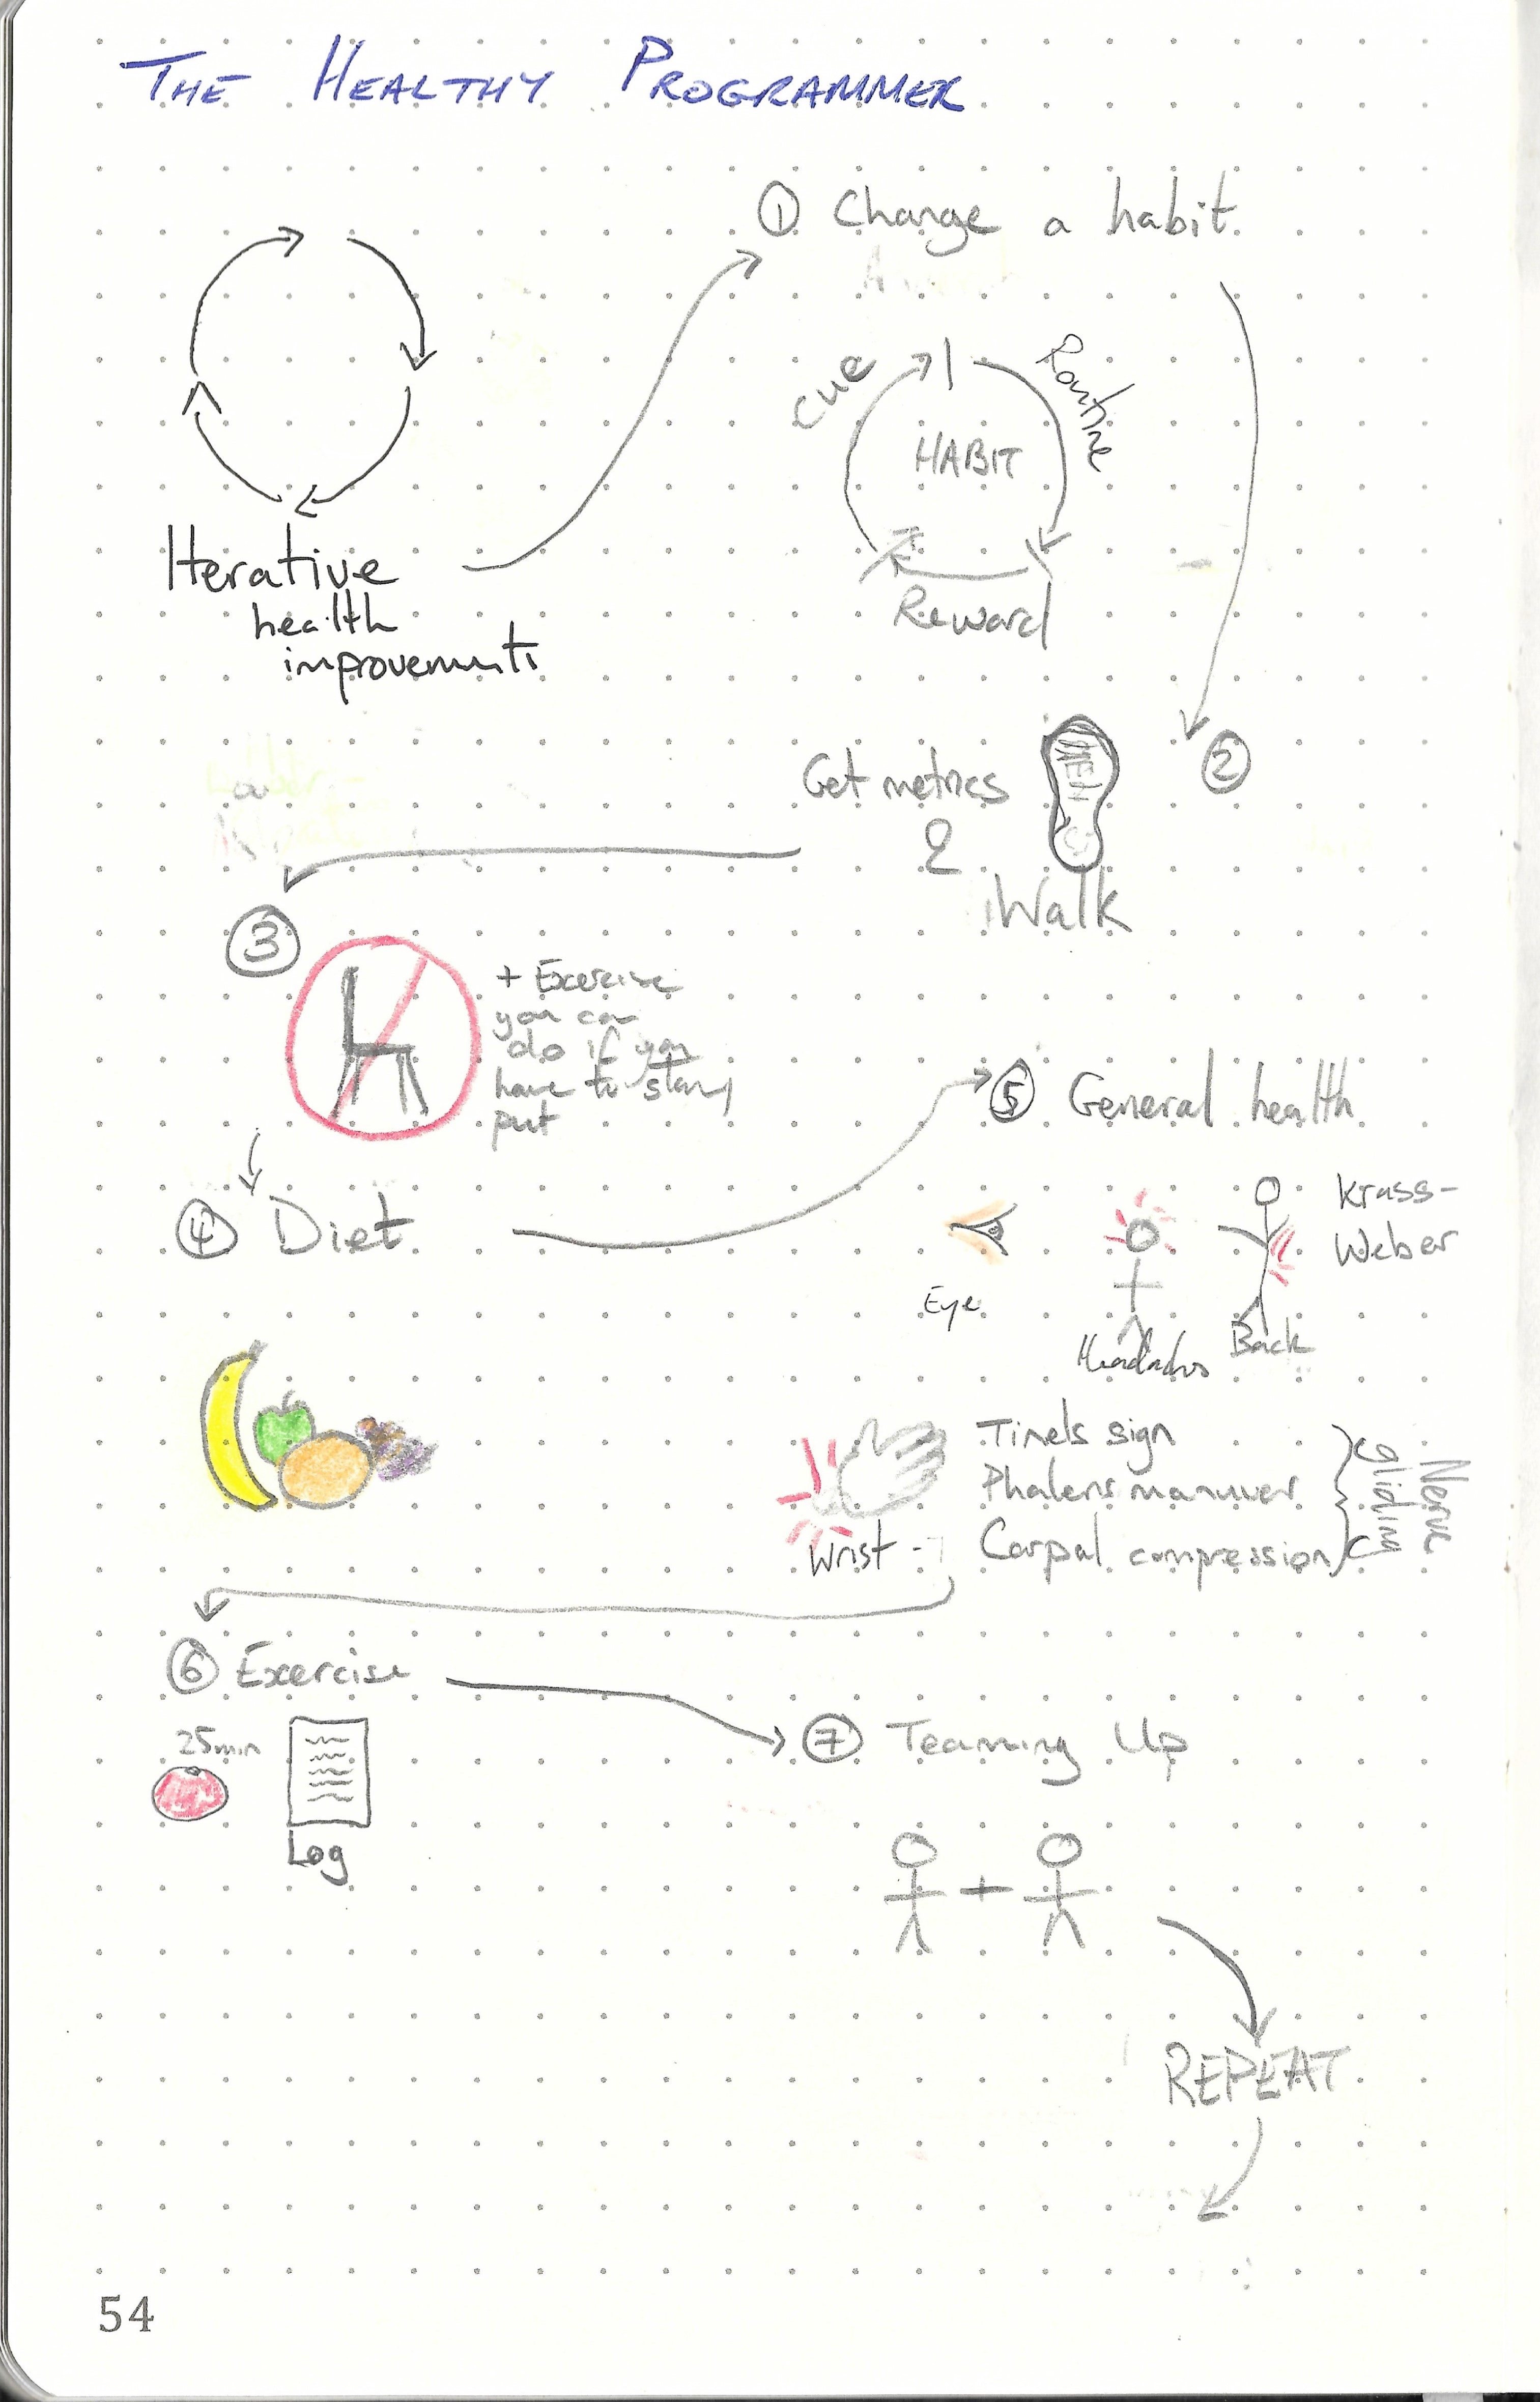 THE HEALTHY PROGRAMMER
Iterative
health
improvements
① Change a habit
Cue
Routine
HABIT
Reward
②
Get metrics
&
Walk
③
+ Exercise
you can
do if you
have to stay
put
④ Diet
⑤ General health
Eye
Headaches
Back
Krass-
Weber
Wrist -
Tinels sign
Phalens manuver
Carpal compression
Nerve
gliding
⑥ Exercise
25min
Log
⑦ Teaming Up
+
REPEAT
54